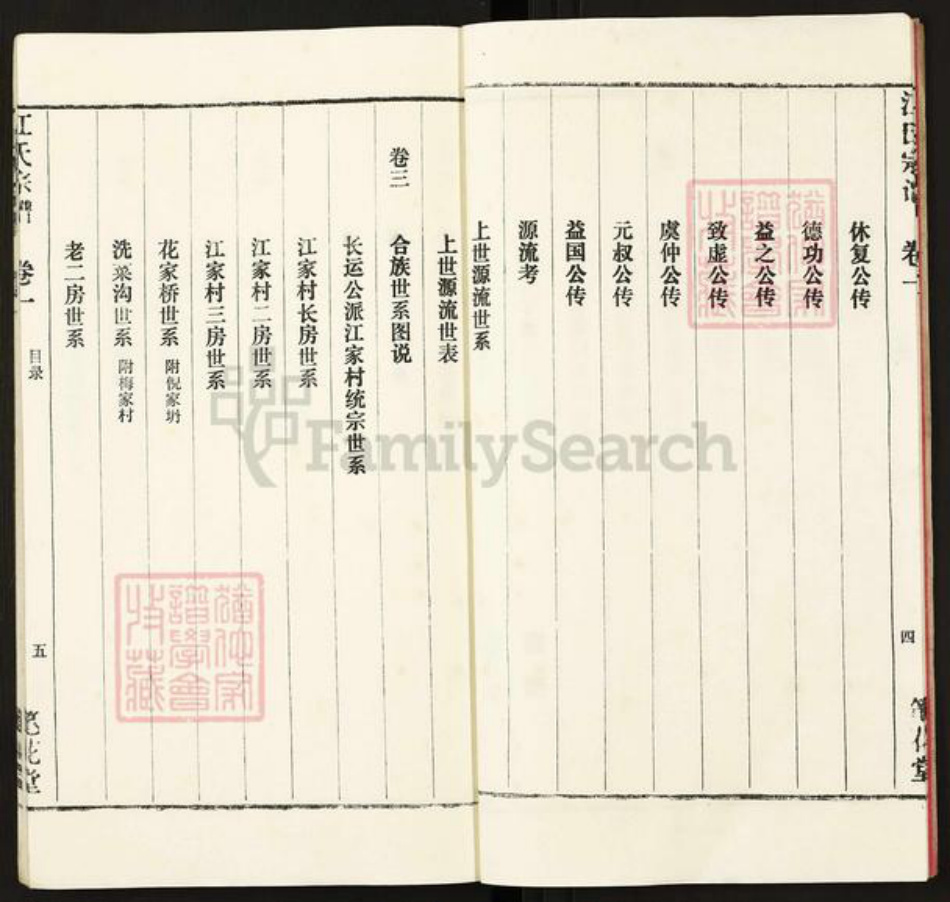 江氏宗谱
卷一
四
笔花堂
休复公传
德功公传
益之公传
致虚公传
虞仲公传
元叔公传
益国公传
源流考
上世源流世系
上世源流世表
卷三
合族世系图说
长运公派江家村统宗世系
江家村长房世系
江家村二房世系
江家村三房世系
花家桥世系 附倪家坍
洗菜沟世系 附梅家村
老二房世系
江氏宗谱
卷一
目录
五
笔花堂
FamilySearch